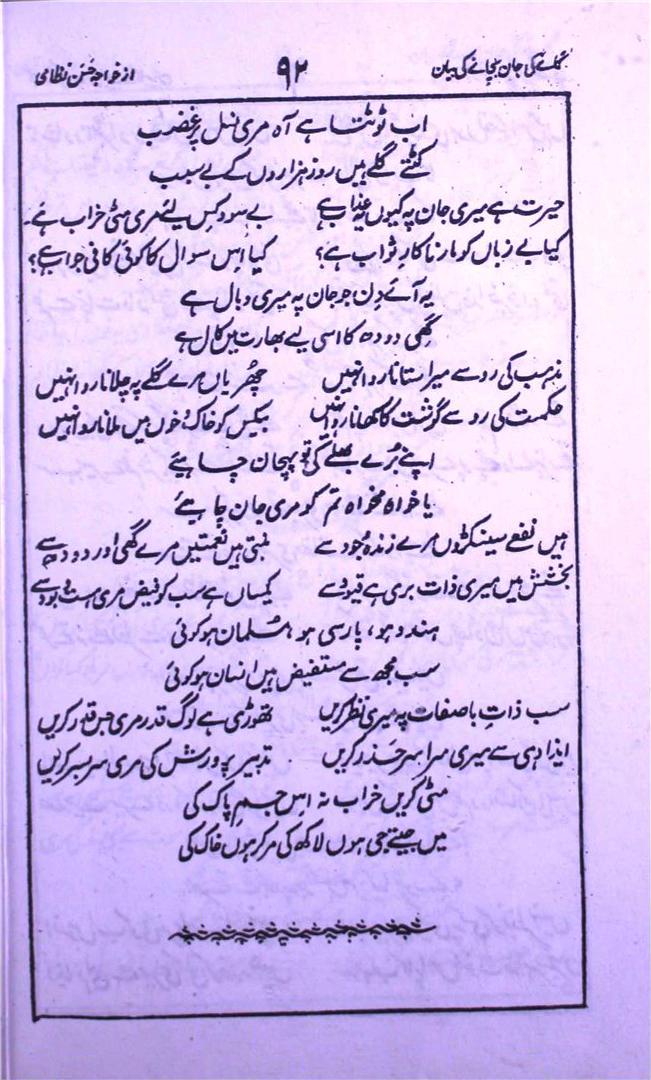 گائے کی جان بچانے کی بیان ۹۲ از خواجہ حسن نظامی
اب ٹوٹتا ہے آہ مری نسل پر غضب
کٹتے گلے ہیں روز ہزاروں کے بے سبب
حیرت ہے میری جان پہ کیوں یہ عذاب ہے بے سود کس لیے مری مٹی خراب ہے۔
کیا بے زباں کو مارنا کارِ ثواب ہے؟ کیا اِس سوال کا کوئی کافی جواب ہے؟
یہ آئے دِن جو جان پہ میری وبال ہے
گھی دودھ کا اسی لیے بھارت میں کال ہے
مذہب کی رو سے میرا ستانا روا نہیں چھُریاں مرے گلے پہ چلانا روا نہیں
حکمت کی رو سے گوشت کا کھانا روا نہیں بیکس کو خاک و خوں میں ملانا روا نہیں
اپنے بُرے بھلے کی تو پہچان چاہیئے
یا خواہ مخواہ تم کو مری جان چاہیئے
ہیں نفع سینکڑوں مرے زندہ وجود سے ملتی ہیں نعمتیں مرے گھی اور دودھ سے
بخشش میں میری ذات بری ہے قیود سے یکساں ہے سب کو فیض مری ہست و بود سے
ہندو ہو، پارسی ہو، مُسلمان ہو کوئی
سب مجھ سے مستفیض ہیں انسان ہو کوئی
سب ذاتِ باصفات پہ میری نظر کریں تھوڑی ہے لوگ قدر مری جس قدر کریں
ایذا دہی سے میری سراسر حَذر کریں تدبیر پرورش کی مری سر بسر کریں
مٹی کریں خراب نہ اِس جسمِ پاک کی
میں جیتے جی ہوں لاکھ کی مر کر ہوں خاک کی